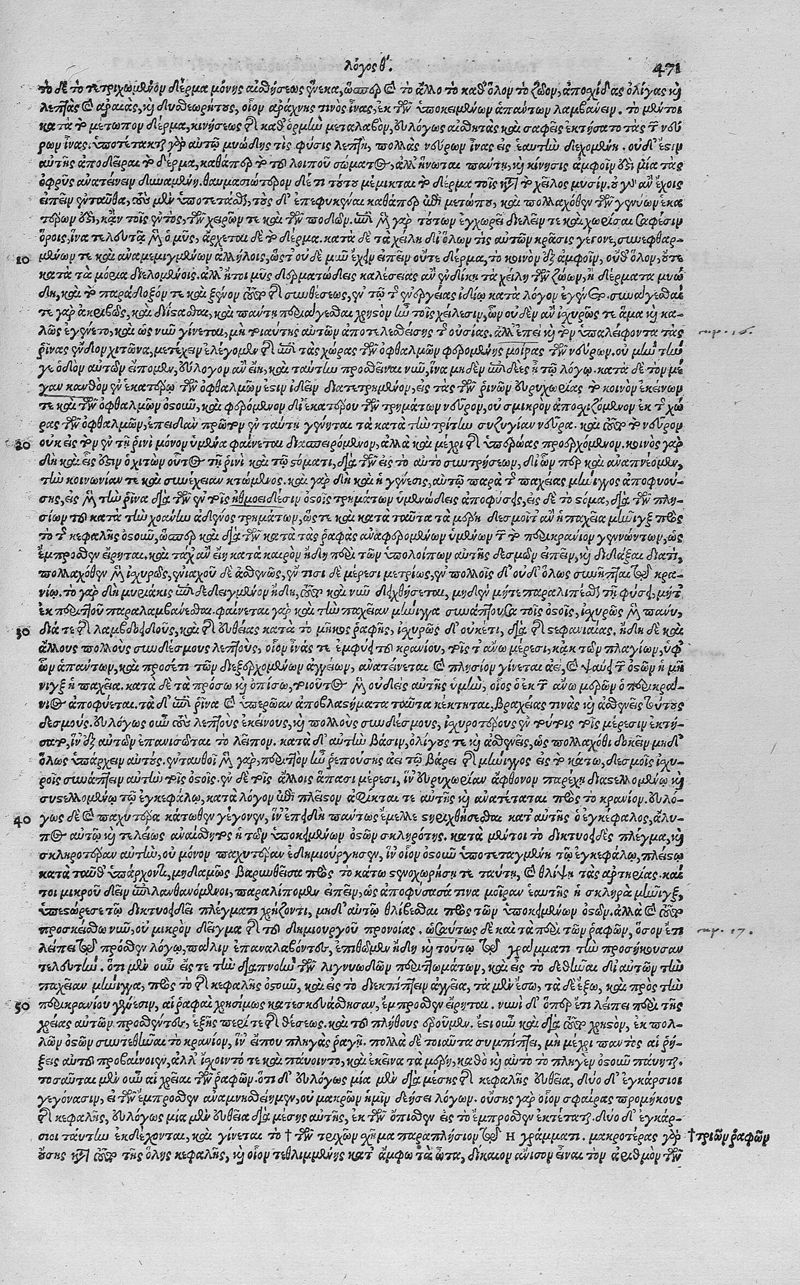 λόγος θ΄. 471
τὸ δὲ τὸ τετριχωμένον δέρμα μόνης αἰσθήσεως ἕνεκα, ὥσπερ καὶ τὸ ἄλλο τὸ καθ' ὅλον τὸ ζῶον, ἀποχίδας ὀλίγας καὶ
λεπτὰς καὶ ἀραιὰς, καὶ δυσθεωρήτους, οἷον ἀράχνης τινὸς ἶνας, ἐκ τῶν ὑποκειμένων ἁπάντων λαμβάνειν. τὸ μέντοι
κατὰ τὸ μέτωπον δέρμα, κινήσεως τῆς καθ' ὁρμὴν μεταλαβὸν, εὐλόγως αἰσθητὰς καὶ σαφεῖς ἐκτήσατο τὰς τῶν νεύ-
ρων ἶνας. ὑποτέτακται γὰρ αὐτῷ μυώδης τις φύσις λεπτὴ, πολλὰς νεύρων ἶνας εἰς ἑαυτὴν δεχομένη. οὐδ' ἔστιν
αὐτῆς ἀποδεῖραι τὸ δέρμα, καθάπερ τὸ τοῦ λοιποῦ σώματος, ἀλλ' ἥνωται πάντη, καὶ κίνησις ἀμφοῖν ἐστι μία τὰς
ὀφρῦς ἀνατείνειν δυναμένη. θαυμασιώτερον δ' ἔτι τούτου μέμικται τὸ δέρμα τοῖς κατὰ τὸ χεῖλος μυσίν. ὃ γὰρ ἂν ἔχοις
εἰπεῖν ἐνταῦθα, τὸν μὲν ὑποτετάσθαι, τὸ δ' ἐπιπεφυκέναι καθάπερ ἐπὶ μετώπου, καὶ πολλαχόθεν τῶν γενύων ἑκα-
τέρων ἐστὶ, κἀν τοῖς ἐντὸς, τῶν χειρῶν τε καὶ τῶν ποδῶν. ἐπὶ μὲν γὰρ τούτων ἐγχωρεῖ διελεῖν τε καὶ χωρίσαι σαφέσιν
ὅροις, ἵνα τελευτᾷ μὲν ὁ μῦς, ἄρχεται δὲ τὸ δέρμα. κατὰ δὲ τὰ χείλη δι' ὅλων τῆς αὐτῶν κρᾶσις γέγονε, συνεφθαρ-
10 μένων τε καὶ ἀναμεμιγμένων ἀλλήλοις, ὥστ' οὐδὲ μῦν ἔχειν εἰπεῖν οὔτε δέρμα, τὸ κοινὸν ἐξ ἀμφοῖν, οὐδ' ὅλον, οὔτε
κατὰ τὰ μόρια διελομένοις. ἀλλ' ἤτοι μῦς δερματώδεις καλέσειας ἂν ἐνδίκη τὰ χείλη τῶν ζώων, ἢ δέρματα μυώ-
δη, καὶ τὸ παράδοξόν τε καὶ ξένον τὸ τῆς συνθέσεως, ἐν τῷ τῆς ἐνεργείας ἰδίῳ κατὰ λόγον ἐγένετο. συνάγεσθαί
τε γὰρ ἀκριβῶς, καὶ διίστασθαι, καὶ πάντη περιάγεσθαι χρηστὸν ἦν τοῖς χείλεσιν, ὧν οὐδὲν ἂν ἰσχυρῶς τε ἅμα καὶ κα-
λῶς ἐγένετο, καὶ ὡς νῦν γίνεται, μὴ τοιαύτης αὐτῶν ἀποτελεσθείσης τῆς οὐσίας. ἀλλ' ἐπεὶ καὶ τὸν ὑπαλείφοντα τὰς cap. 16.
ῥῖνας ἔνδον χιτῶνα, μετέχειν ἐλέγομεν τῆς ἐπὶ τὰς χώρας τῶν ὀφθαλμῶν φερομένης μοίρας τῶν νεύρων. οὐ μὴν τήν
γε ὁδὸν αὐτῶν εἴπομεν, εὔλογον ἂν εἴη, καὶ ταύτην προσθεῖναι νῦν, ἵνα μηδὲν ἐνδεὲς ᾖ τῷ λόγῳ. κατὰ δὲ τὸν μέ-
γαν κανθὸν ἐν ἑκατέρῳ τῶν ὀφθαλμῶν ἔστιν ἰδεῖν διατετρημένον, εἰς τὰς τῶν ῥινῶν εὐρυχωρίας τὸ κοινὸν ἐκείνων
τε καὶ τῶν ὀφθαλμῶν ὀστοῦν, καὶ φερόμενον δι' ἑκατέρου τῶν τρημάτων νεῦρον, οὐ σμικρὸν ἀποσχιζόμενον ἐκ τῆς χώ-
ρας τῶν ὀφθαλμῶν, ἐπειδὰν πρῶτον ἐν ταύτῃ γένηται τὰ κατὰ τὴν τρίτην συζυγίαν νεῦρα. καὶ τὸ νεῦρον
20 οὐκ εἰς τὸν ἐν τῇ ῥινὶ μόνον ὑμένα φαίνεται διασπειρόμενον, ἀλλὰ καὶ μέχρι τῆς ὑπερώας προσερχόμενον. κοινὸς γὰρ
δὴ καὶ εἷς ἐστιν ὁ χιτὼν οὗτος τῇ ῥινὶ καὶ τῷ στόματι, διὰ τῶν εἰς τὸ αὐτὸ συντρήσεων, δι' ὧν περ καὶ ἀναπνέομεν,
τὴν κοινωνίαν τε καὶ συνέχειαν κτώμενος. καὶ γὰρ δὴ καὶ ἡ γένεσις, αὐτῷ παρὰ τῆς παχείας μήνιγγος ἀποφυού-
σης, εἰς μὲν τὴν ῥῖνα διὰ τῶν ἐν τοῖς ἠθμοειδέσιν ὀστοῖς τρημάτων ὑμενώδεις ἀποφύσεις, εἰς δὲ τὸ στόμα, διὰ τῶν πλη-
σίων τοῦ κατὰ τὴν χοάνην ἀδένος τρημάτων, ὥστε καὶ κατὰ ταῦτα τὰ μέρη δεσμοῖτ' ἂν ἡ παχεῖα μήνιγξ πρὸς
τὸ τῆς κεφαλῆς ὀστοῦν, ὥσπερ καὶ κατὰ τὰς ῥαφὰς ἀναφερομένων ὑμένων τῶν τὸν περικράνιον γεννώντων, ὡς
ἔμπροσθεν εἴρηται, καὶ τάχ' ἂν εἴη κατὰ καιρὸν ἤδη περὶ τῶν ὑπολοίπων αὐτῆς δεσμῶν εἰπεῖν, καὶ διδάξαι διατί,
πολλαχόθεν μὲν ἰσχυρῶς, ἐνιαχοῦ δὲ ἀσθενῶς, ἔν τισι δὲ μέρεσι μετρίως, ἐν πολλοῖς δ' οὐδ' ὅλως συνῆπται τῷ κρα-
νίῳ. τὸ γὰρ δὴ μυριάκις ἐπιδεδειγμένον ἤδη, τὸ καὶ νῦν δειχθήσεται, μηδὲν μήτε παραλιπέσθαι τῇ φύσει, μήτ'
ἐκ περιττοῦ παραλαμβάνεσθαι. φαίνεται γὰρ καὶ τὴν παχεῖαν μήνιγγα συνάπτουσα τοῖς ὀστοῖς, ἰσχυρῶς μὲν πάνυ,
30 διά τε τῆς λαμβδοειδοῦς, καὶ τῆς εὐθείας κατὰ τὸ μῆκος ῥαφῆς, ἰσχυρῶς δ' οὐκέτι, διὰ τῆς στεφανιαίας. ἤδη δὲ καὶ
ἄλλους πολλοὺς συνδέσμους λεπτοὺς, οἷον ἶνάς τε ἐμφύει τῷ κρανίῳ, τοῖς τ' ἄνω μέρεσι, κἀκ τῶν πλαγίων, ὑφ'
ὧν ἁπάντων, καὶ προσέτι τῶν διεξερχομένων ἀγγείων, ἀνατείνεται καὶ πλησίον γίνεται ἀεὶ, καὶ ψαύει τῶν ὀστῶν ἡ μῆ-
νιγξ ἡ παχεῖα. κατὰ δὲ τὰ πρόσω καὶ ὀπίσω, τοιοῦτος μὲν οὐδεὶς αὐτῆς ὑμὴν, οἷος ἐκ τῶν ἄνω μερῶν ὁ περικρά-
νιος ἀποφύεται. τὰ δ' ἐν ῥῖνα καὶ ὑπερῴαν ἀποβλαστήματα ταῦτα κέκτηται, βραχείας τινὰς καὶ ἀσθενεῖς τούτους
δεσμούς. εὐλόγως οὖν τοὺς λεπτοὺς ἐκείνους, καὶ πολλοὺς συνδέσμους, ἰσχυροτέρους ἐν τούτοις τοῖς μέρεσιν ἐκτή-
σατο, ἵν' ἐξ αὐτῶν ἐπανισῶται τὸ λεῖπον. κατὰ δ' αὐτὴν βάσιν, ὀλίγος τε καὶ ἀσθενεῖς, ὡς πολλαχόθι δοκεῖν μηδ'
ὅλως ὑπάρχειν αὐτούς. ἐνταυθοῖ μὲν γὰρ, περιττὸν ἦν ῥεπούσης ἀεὶ τῷ βάρει τῆς μήνιγγος εἰς τὸ κάτω, δεσμοῖς ἰσχυ-
ροῖς συνάπτειν αὐτὴν τοῖς ὀστοῖς. ἐν δὲ τοῖς ἄλλοις ἅπασι μέρεσιν, ἵν' εὐρυχωρίαν ἄφθονον παρέχῃ διαστελλομένῳ καὶ
συστελλομένῳ τῷ ἐγκεφάλῳ, κατὰ λόγον ἐπὶ πλεῖστον ἀφῖκταί τε αὐτῆς καὶ ἀνατέταται πρὸς τὸ κρανίον. εὐλό-
40 γως δὲ καὶ παχυτέρα κάτωθεν γέγονεν, ἵν' ἐπειδὴ πάντως ἔμελλε στηριχθήσεσθαι κατ' αὐτῆς ὁ ἐγκέφαλος, ἄλυ-
πος αὐτῷ καὶ τελέως ἀναίσθητος ᾖ τῶν ὑποκειμένων ὀστῶν σκληρότης. κατὰ μέντοι τὸ δικτυοειδὲς πλέγμα, καὶ
σκληροτέραν αὐτὴν, οὐ μόνον παχυτέραν ἐδημιούργησεν, ἵν' οἷον ὀστοῦν ὑποτεταγμένη τῷ ἐγκεφάλῳ, πλείστῳ
κατὰ τοῦθ' ὑπάρχοντι, μηδαμῶς βαρυνθεῖσα πρὸς τὸ κάτω ἐνοχωρήσῃ τε ταύτῃ, καὶ θλίψῃ τὰς ἀρτηρίας. καί
τοι μικροῦ δεῖν ἐπιλανθανόμενοι, παραλίπομεν εἰπεῖν, ὡς ἀποφύσασά τινα μοῖραν ἑαυτῆς ἡ σκληρὰ μήνιγξ,
ὑπεστόρεσε τῷ δικτυοειδεῖ πλέγματι χρῄζοντι, μηδ' αὐτῷ θλίβεσθαι πρὸς τῶν ὑποκειμένων ὀστῶν. ἀλλὰ καὶ τὸ
προσκείσθω νῦν, οὐ μικρὸν δεῖγμα τῆς τοῦ δημιουργοῦ προνοίας. ὡσαύτως δὲ καὶ τὰ περὶ τῶν ῥαφῶν, ὅσον ἔτι cap. 17.
λείπει τῷ πρόσθεν λόγῳ, πάλιν ἐπαναλαβόντας, ἐπιθῶμεν ἤδη καὶ τούτῳ τῷ γράμματι τὴν προσήκουσαν
τελευτήν. ὅτι μὲν οὖν εἴς τε τὴν διαπνοὴν τῶν λιγνυωδῶν περιττωμάτων, καὶ εἰς τὸ δεθῆναι δι' αὐτῶν τὴν
παχεῖαν μήνιγγα, πρὸς τὸ τῆς κεφαλῆς ὀστοῦν, καὶ εἰς τὸ διεκπίπτειν ἀγγεῖα, τὰ μὲν ἔσω, τὰ δὲ ἔξω, καὶ πρὸς τὴν τοῦ
50 περικρανίου γένεσιν, αἱ ῥαφαὶ χρησίμως κατεσκευάσθησαν, ἔμπροσθεν εἴρηται. νυνὶ δ' ὅπερ ἔτι λείπει περὶ τῆς
χρείας αὐτῶν προσθέντες, ἑξῆς περί τε τῆς θέσεως, καὶ τοῦ πλήθους ἐροῦμεν. ἔστι οὖν καὶ διὰ τὸ χρηστὸν, ἐκ πολ-
λῶν ὀστῶν συντεθῆναι τὸ κρανίον, ἵν' εἴπου πληγὰς ῥαγῇ. πολλὰ δὲ τοιαῦτα συμπίπτει, μὴ μέχρι παντὸς αἱ ῥή-
ξεις αὐτοῦ προβαίνοιεν, ἀλλ' ἴσχοιντό τε καὶ παύοιντο, κατ' ἐκεῖνα τὰ μέρη, καθὸ καὶ αὐτὸ τὸ πληγὲν ὀστοῦν παύηται.
τοσαῦται μὲν οὖν αἱ χρεῖαι τῶν ῥαφῶν. ὅτι δ' εὐλόγως μία μὲν διὰ μέσης τῆς κεφαλῆς εὐθεῖα, δύο δ' ἐγκάρσιοι
γεγόνασιν, εἰ τῶν ἔμπροσθεν ἀναμνησθείημεν, οὐ μακρῶν ἡμῖν δεήσει λόγων. οὔσης γὰρ οἷον σφαίρας προμήκους
τῆς κεφαλῆς, εὐλόγως μία μὲν εὐθεῖα διὰ μέσης αὐτῆς, ἐκ τῶν ὄπισθεν εἰς τὸ ἔμπροσθεν ἐκτέταται. δύο δ' ἐγκάρ-
σιοι ταύτην ἐκδέχονται, καὶ γίνεται τὸ † τῶν τειχῶν σχῆμα παραπλήσιον τῷ Η γράμματι. μακροτέρας γὰρ † τριῶν ῥαφῶν
οὔσης κατὰ τὸ τῆς ὅλης κεφαλῆς, καὶ οἷον τεθλιμμένης κατ' ἄμφω τὰ ὦτα, δίκαιον ἄνισον εἶναι τὸν ἀριθμὸν τῶν